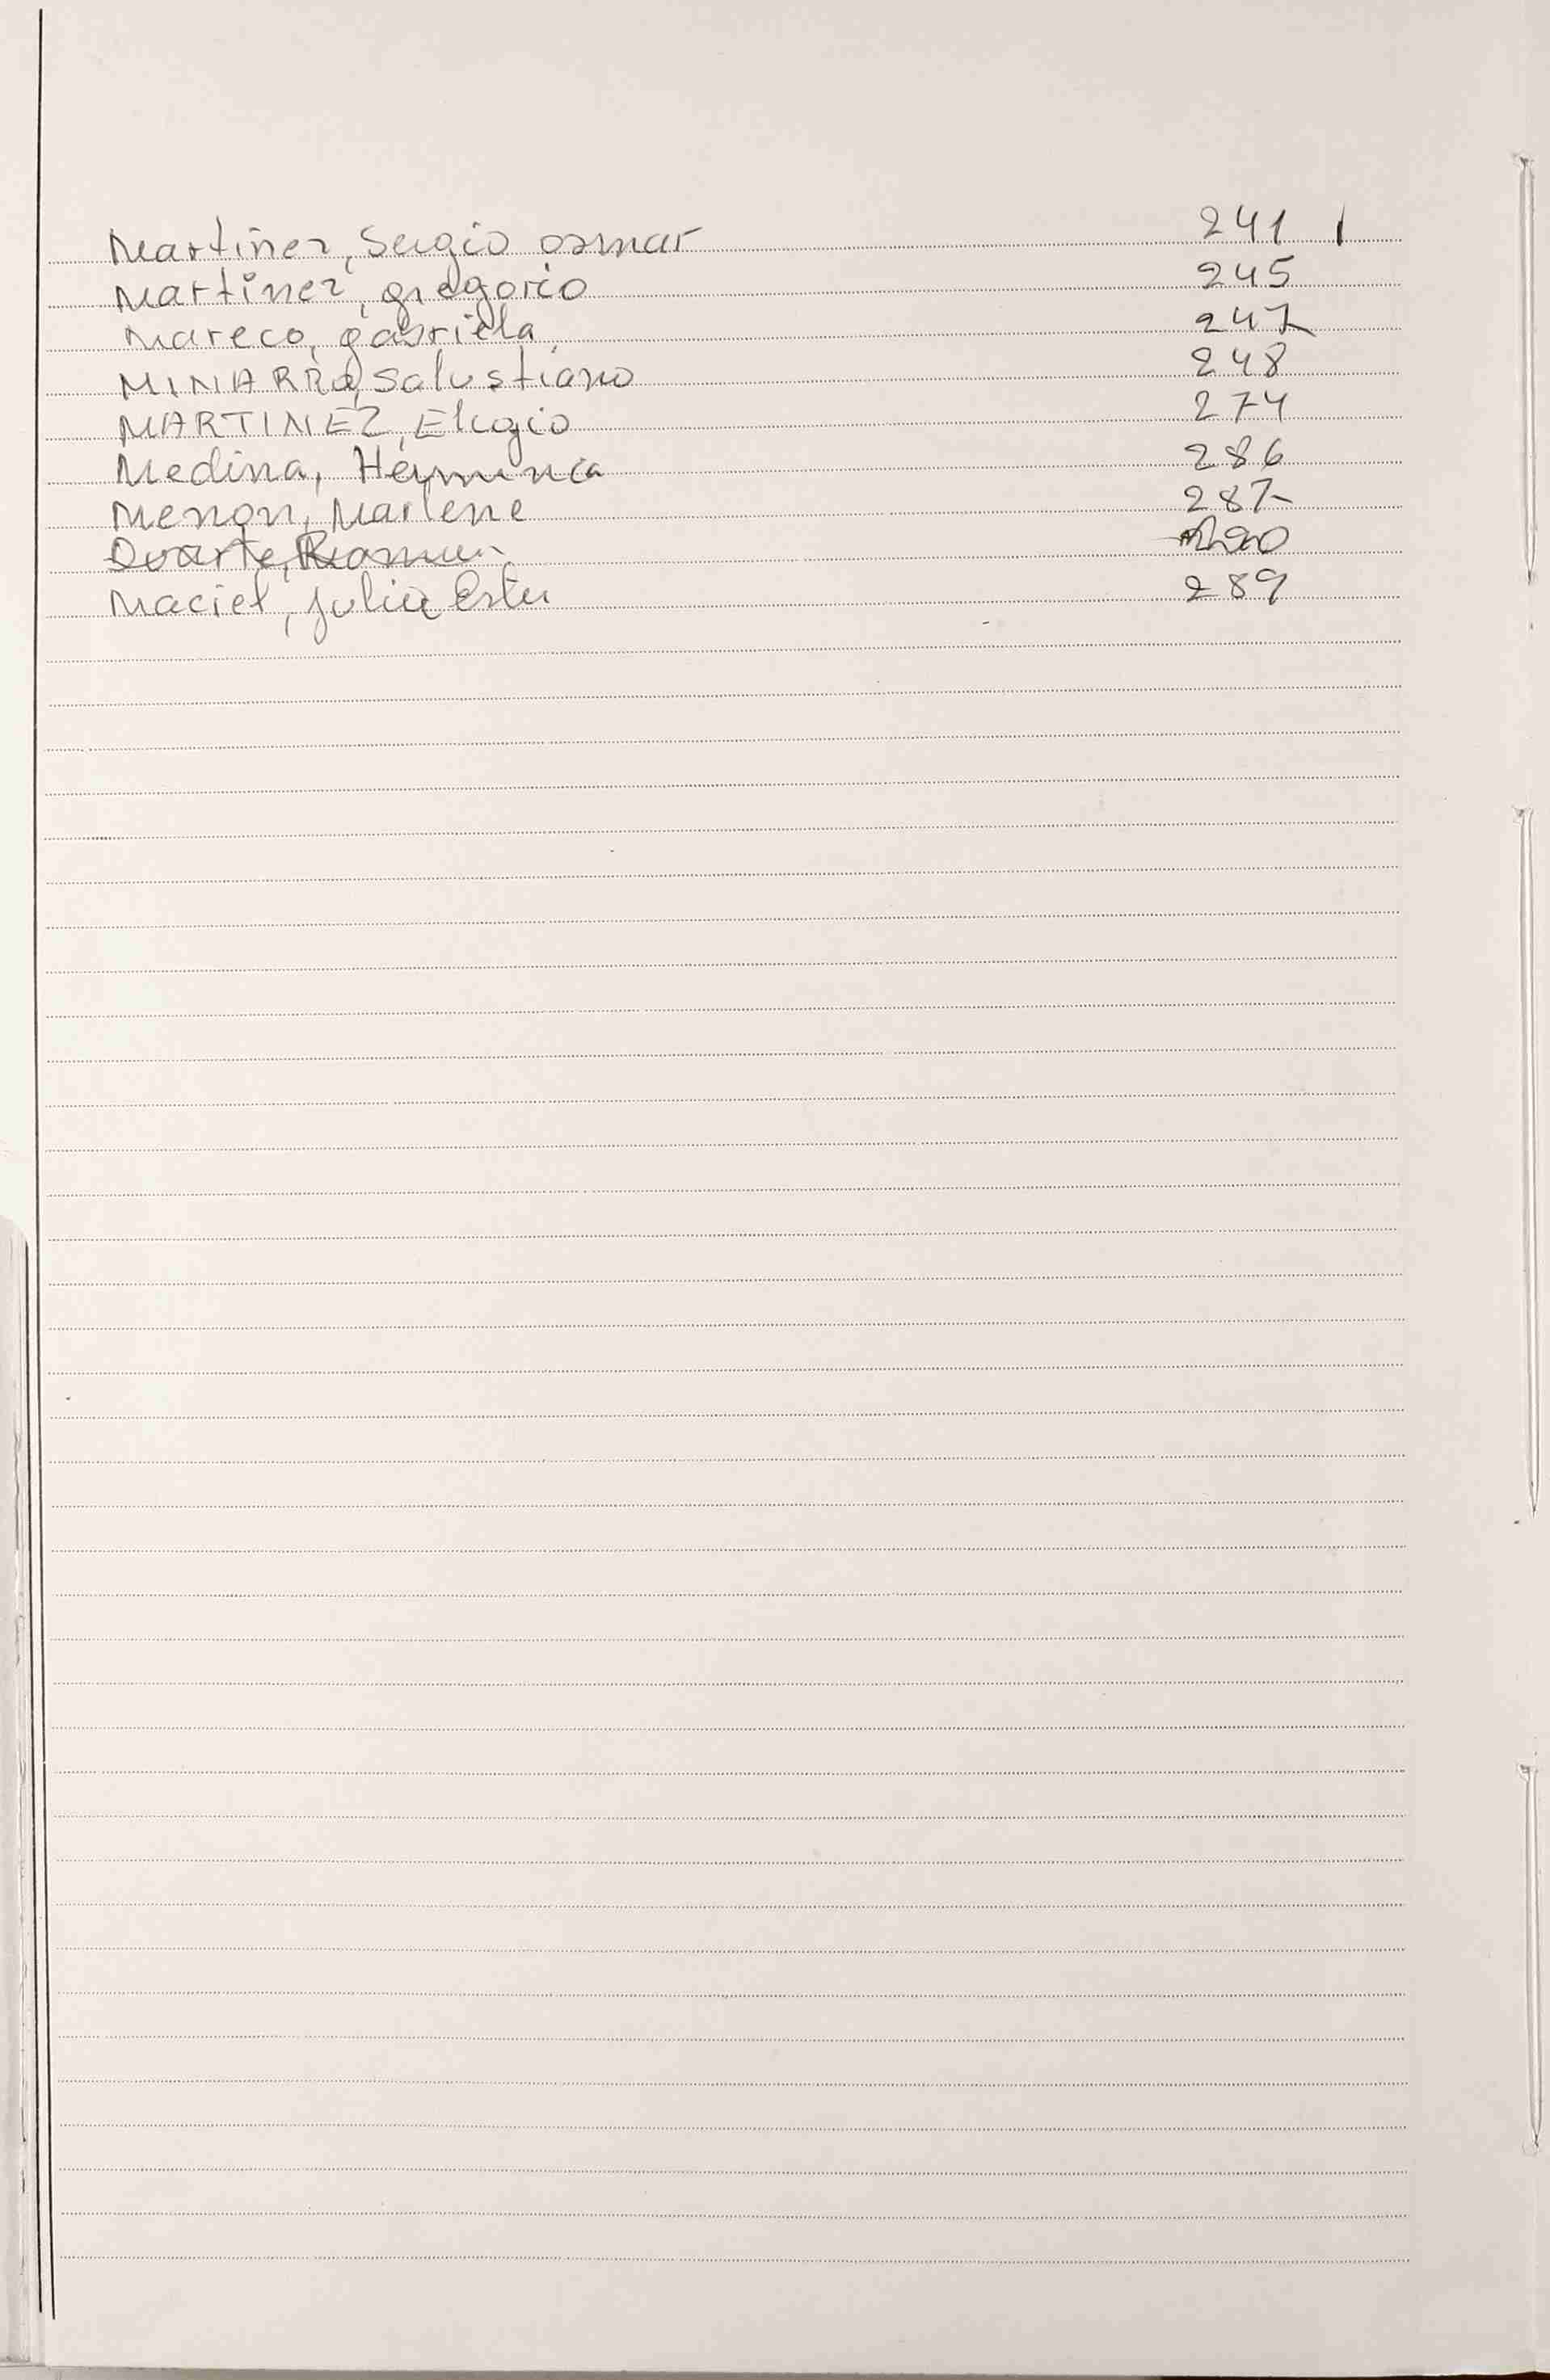 Martinez, Sergio osmar 241 1
Martinez, gregorio 245
Mareco, gabriela, 247
MINARRO, Salustiano 248
MARTINEZ, Eligio 274
Medina, Herminia 286
Menon, Marlene 287
Duarte, 290
Maciel, Julia Ester 289